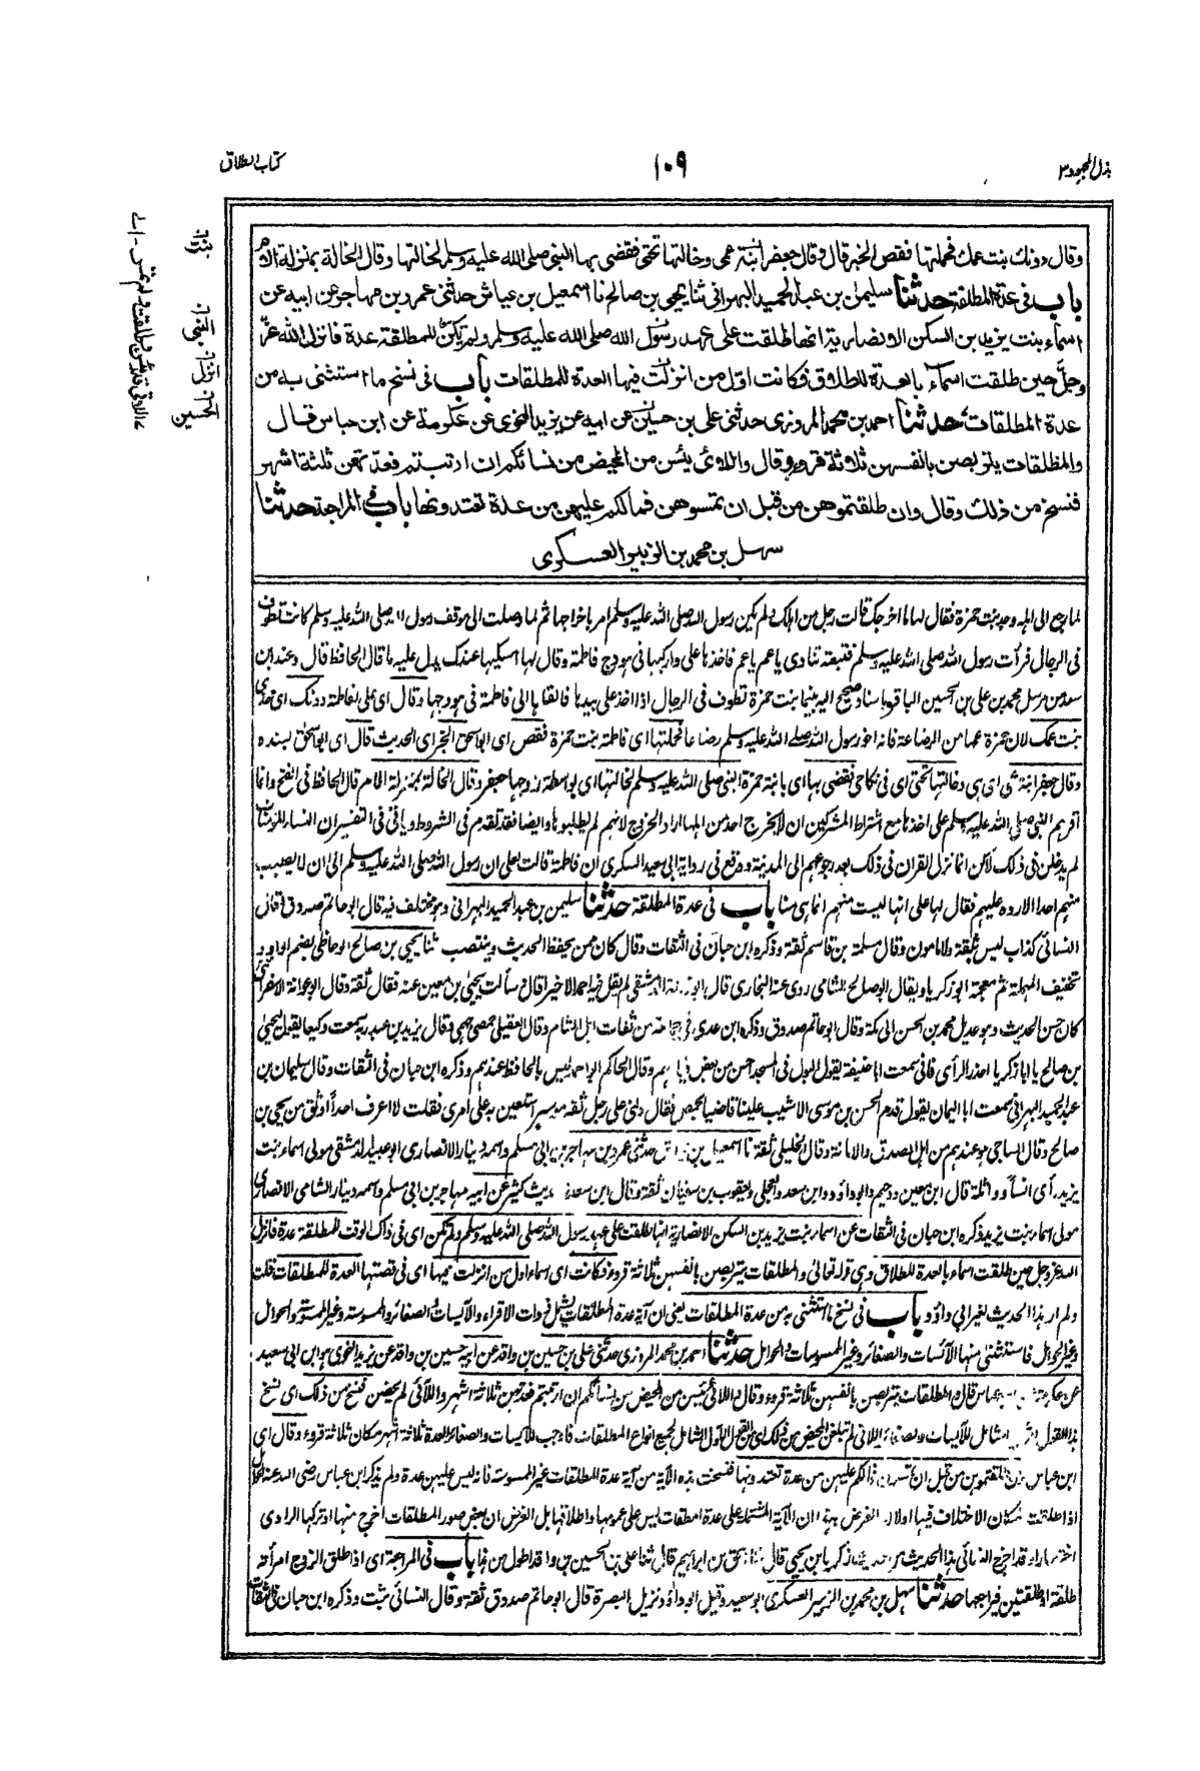 بذل المجهود ٣
١٠٩
كتاب الطلاق
وقال دونك بنت عمك فحملتها فقص الخبر قال وقال جعفر ابنة عمي وخالتها تحتي فقضى بها النبي صلى الله عليه وسلم لخالتها وقال الخالة بمنزلة الام
باب في عدة المطلقة حدثنا سليمن بن عبد الحميد البهراني ثنا يحيى بن صالح نا اسمعيل بن عياش حدثني عمرو بن مهاجر عن ابيه عن
اسماء بنت يزيد بن السكن الانصارية انها طلقت على عهد رسول الله صلى الله عليه وسلم ولم يكن للمطلقة عدة فانزل الله عز
وجل حين طلقت اسماء بالعدة للطلاق فكانت اول من انزلت فيها العدة للمطلقات باب في نسخ ما استثنى به من
عدة المطلقات حدثنا احمد بن محمد المروزي حدثني علي بن حسين عن ابيه عن يزيد النحوي عن عكرمة عن ابن عباس قال
والمطلقات يتربصن بانفسهن ثلاثة قروء وقال واللائي يئسن من المحيض من نسائكم ان ارتبتم فعدتهن ثلثة اشهر
فنسخ من ذلك وقال وان طلقتموهن من قبل ان تمسوهن فما لكم عليهن من عدة تعتدونها باب في المراجعة حدثنا
سهل بن محمد بن الزبير العسكري
لما رجع الى اهله وجد بنت حمزة فقال لها ما اخرجك قالت رجل من اهلك ولم يكن رسول الله صلى الله عليه وسلم امر باخراجها ثم لما وصلت الى موقف رسول الله صلى الله عليه وسلم كانت تطوف
في الرجال فرأت رسول الله صلى الله عليه وسلم فتبعته تنادي يا عم يا عم فاخذها علي واركبها في هودج فاطمة وقال لها امسكيها عندك يدل عليه ما قال الحافظ قال وعند ابن
سعد من مرسل محمد بن علي بن الحسين الباقر باسناد صحيح اليه بينما بنت حمزة تطوف في الرجال اذ اخذ علي بيدها فالقاها الى فاطمة في هودجها وقال اي علي لفاطمة دونك اي خذي
بنت عمك لان حمزة عمها من الرضاعة فانه اخو رسول الله صلى الله عليه وسلم رضاعا فحملتها اي فاطمة بنت حمزة فقص اي ابو اسحق الخبر اي الحديث قال اي ابو اسحق بسنده
وقال جعفر ابنة عمي اي هي وخالتها تحتي اي في نكاحي فقضى بها اي بابنة حمزة النبي صلى الله عليه وسلم لخالتها اي بواسطة زوجها جعفر وقال الخالة بمنزلة الام قال الحافظ في الفتح وانما
اقرهم النبي صلى الله عليه وسلم على اخذها مع اشتراط المشركين ان لا يخرج احد من اهلها اراد الخروج لانهم لم يطلبوها وايضا فقد تقدم في الشروط وياتي في التفسير ان النساء المؤمنات
لم يدخلن في ذلك لكن انما نزل القران في ذلك بعد رجوعهم الى المدينة ووقع في رواية ابي سعيد السكري ان فاطمة قالت لعلي ان رسول الله صلى الله عليه وسلم الى ان لا يصيب
منهم احدا الا رده عليهم فقال لها علي انها ليست منهم انما هي منا باب في عدة المطلقة حدثنا سليمن بن عبد الحميد البهراني وهو مختلف فيه قال ابو حاتم صدوق وقال
النسائي كذاب ليس بثقة ولا مامون وقال مسلمة بن قاسم ثقة وذكره ابن حبان في الثقات وقال كان ممن يحفظ الحديث وينتصب ثنا يحيى بن صالح الوحاظي بضم الواو و
تخفيف المهملة ثم معجمة ابو زكريا ويقال ابو صالح الشامي روى عنه البخاري قال ابو زرعة الدمشقي لم يقل فيه احمد الا خيرا قال وسألت يحيى بن معين عنه فقال ثقة وقال ابو عوانة الاسفرائني
كان حسن الحديث وهو عديل محمد بن الحسن الى مكة وقال ابو حاتم صدوق وذكره ابن عدي في جماعة من ثقات اهل الشام وقال العقيلي حمصي جهمي وقال يزيد بن عبد ربه سمعت وكيعا يقول ليحيى
بن صالح يا ابا زكريا احذر الرأي فاني سمعت ابا حنيفة يقول البول في المسجد احسن من بعض قياسهم وقال الحاكم ابو احمد ليس بالحافظ عندهم وذكره ابن حبان في الثقات وقال سليمان بن
عبد الحميد البهراني سمعت ابا اليمان يقول قدم الحسن بن موسى الاشيب علينا قاضيا بحمص فقال دلني على رجل ثقة موسر استعين به على امري فقلت لا اعرف احداً اوثق من يحيى بن
صالح وقال الساجي هو عندهم من اهل الصدق والامانة وقال الخليلي ثقة نا اسمعيل بن عياش حدثني عمرو بن مهاجر بن ابي مسلم واسمه دينار الانصاري ابو عبيد الدمشقي مولى اسماء بنت
يزيد رأى انسا وواثلة قال ابن معين ودحيم وابو داود وابن سعد والعجلي ويعقوب بن سفيان ثقة وقال ابن سعد حديث كثير عن ابيه مهاجر بن ابي مسلم واسمه دينار الشامي الانصاري
مولى اسماء بنت يزيد ذكره ابن حبان في الثقات عن اسماء بنت يزيد بن السكن الانصارية انها طلقت على عهد رسول الله صلى الله عليه وسلم ولم تكن اي في ذاك الوقت للمطلقة عدة فانزل
الله عز وجل حين طلقت اسماء بالعدة للطلاق وهي قوله تعالى والمطلقات يتربصن بانفسهن ثلاثة قروء فكانت اي اسماء اول من انزلت فيها اي في قصتها العدة للمطلقات قلت
ولم ار هذا الحديث لغير ابي داود باب في نسخ ما استثنى به من عدة المطلقات يعني ان آية عدة المطلقات يشمل ذوات الاقراء والآيسات والصغائر والممسوسة وغير الممسوسة والحوامل
وغير الحوامل فاستثنى منها الآئسات والصغائر وغير الممسوسات والحوامل حدثنا احمد بن محمد المروزي حدثني علي بن حسين بن واقد عن ابيه حسين بن واقد عن يزيد النحوي هو ابن ابي سعيد
عن عكرمة عن ابن عباس قال المطلقات يتربصن بانفسهن ثلاثة قروء وقال واللائي يئسن من المحيض من نسائكم ان ارتبتم فعدتهن ثلاثة اشهر واللائي لم يحضن فنسخ من ذلك اي نسخ
بهذا القول الشامل للآيسات والصغائر اللاتي لم تبلغن المحيض من ذلك اي من القول الاول الشامل لجميع انواع المطلقات فاوجب للآيسات والصغائر العدة ثلاثة اشهر مكان ثلاثة قروء وقال اي
ابن عباس وان طلقتموهن من قبل ان تمسوهن فما لكم عليهن من عدة تعتدونها فنسخت بهذه الآية من آية عدة المطلقات غير الممسوسة فانه ليس عليهن عدة ولم يذكر ابن عباس رضي الله عنه الحامل
اذا طلقت لمكان الاختلاف فيها اولان الغرض بهذا ان الآية المشتملة على عدة المطلقات ليس على عمومها واطلاقها بل الغرض ان بعض صور المطلقات اخرج منها او تركها الراوي
اختصارا وقد اخرج النسائي هذا الحديث من حديث زكريا بن يحيى قال ثنا اسحق بن ابراهيم قال ثنا علي بن الحسين بن واقد اطول من هذا باب في المراجعة اي اذا طلق الزوج امرأته
طلقة او طلقتين فيراجعها حدثنا سهل بن محمد بن الزبير العسكري ابو سعيد وقيل ابو داؤد نزيل البصرة قال ابو حاتم صدوق ثقة وقال النسائي ثبت وذكره ابن حبان في الثقات